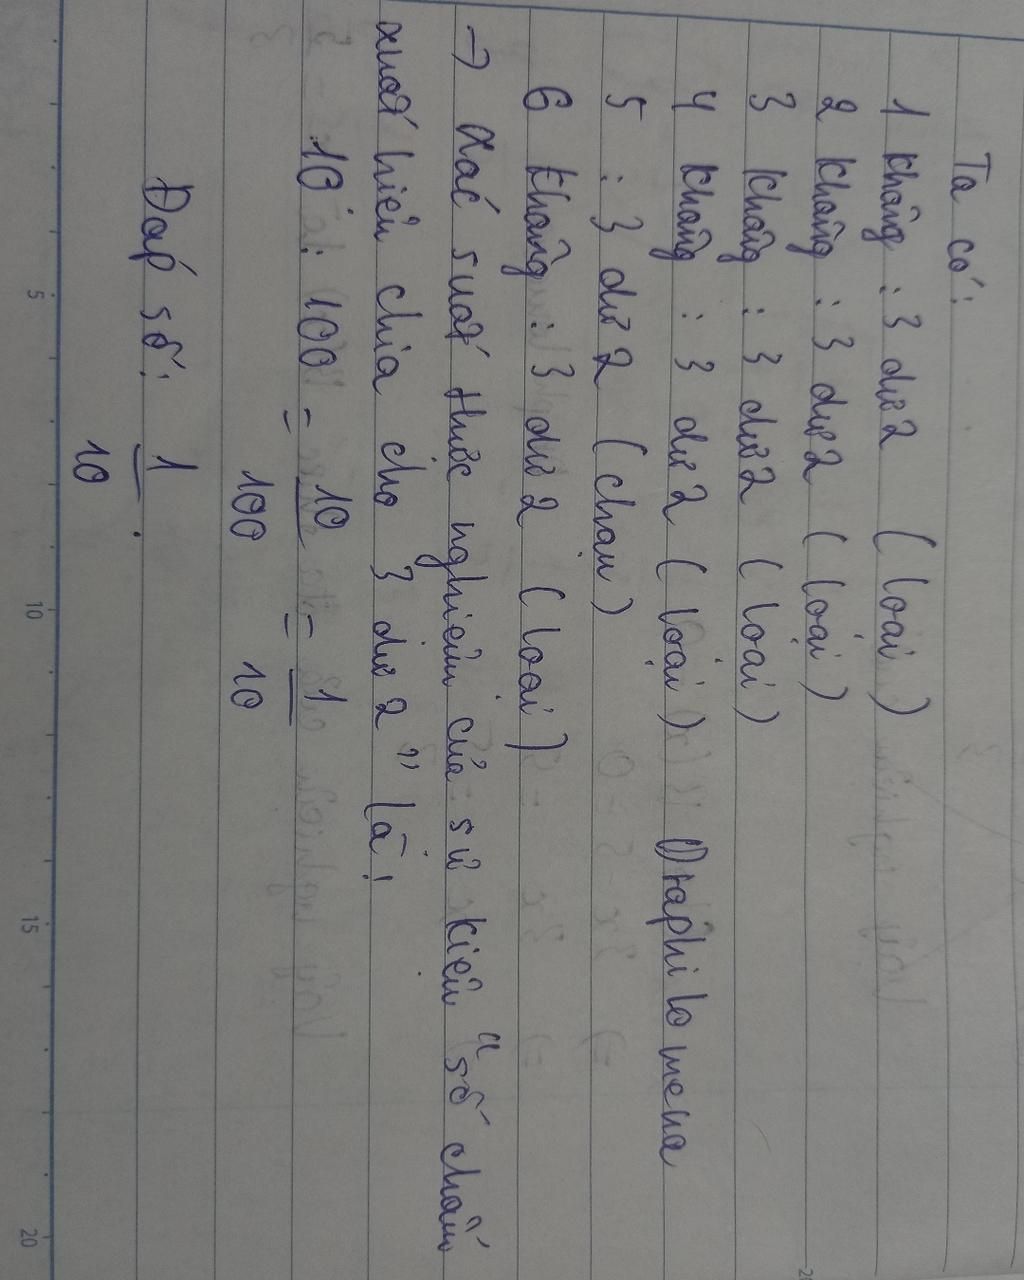 Ta có:
1 không : 3 dư 2 (loại)
2 không : 3 dư 2 (loại)
3 không : 3 dư 2 (loại)
4 không : 3 dư 2 (loại) Draphilomena
5 : 3 dư 2 (chọn)
6 không : 3 dư 2 (loại)
→ Xác suất thực nghiệm của sự kiện "số chấm
xuất hiện chia cho 3 dư 2" là:
10 : 100 = 10/100 = 1/10
Đáp số: 1/10.
5 10 15 20